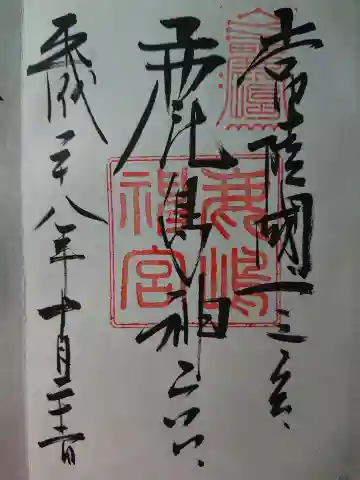 常陸國一之宮
鹿島神宮
平成二十八年十月二十二日
鹿嶋神宮